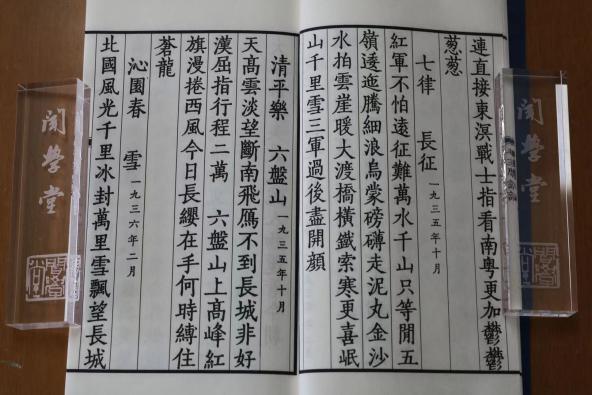 連直接東溟戰士指看南粤更加鬱鬱
葱葱
七律 長征 一九三五年十月
紅軍不怕遠征難萬水千山只等閒五
嶺逶迤騰細浪烏蒙磅礴走泥丸金沙
水拍雲崖暖大渡橋橫鐵索寒更喜岷
山千里雪三軍過後盡開顏
清平樂 六盤山 一九三五年十月
天高雲淡望斷南飛鴈不到長城非好
漢屈指行程二萬 六盤山上高峰紅
旗漫捲西風今日長纓在手何時縛住
蒼龍
沁園春 雪 一九三六年二月
北國風光千里冰封萬里雪飄望長城
閒學堂
閒學堂